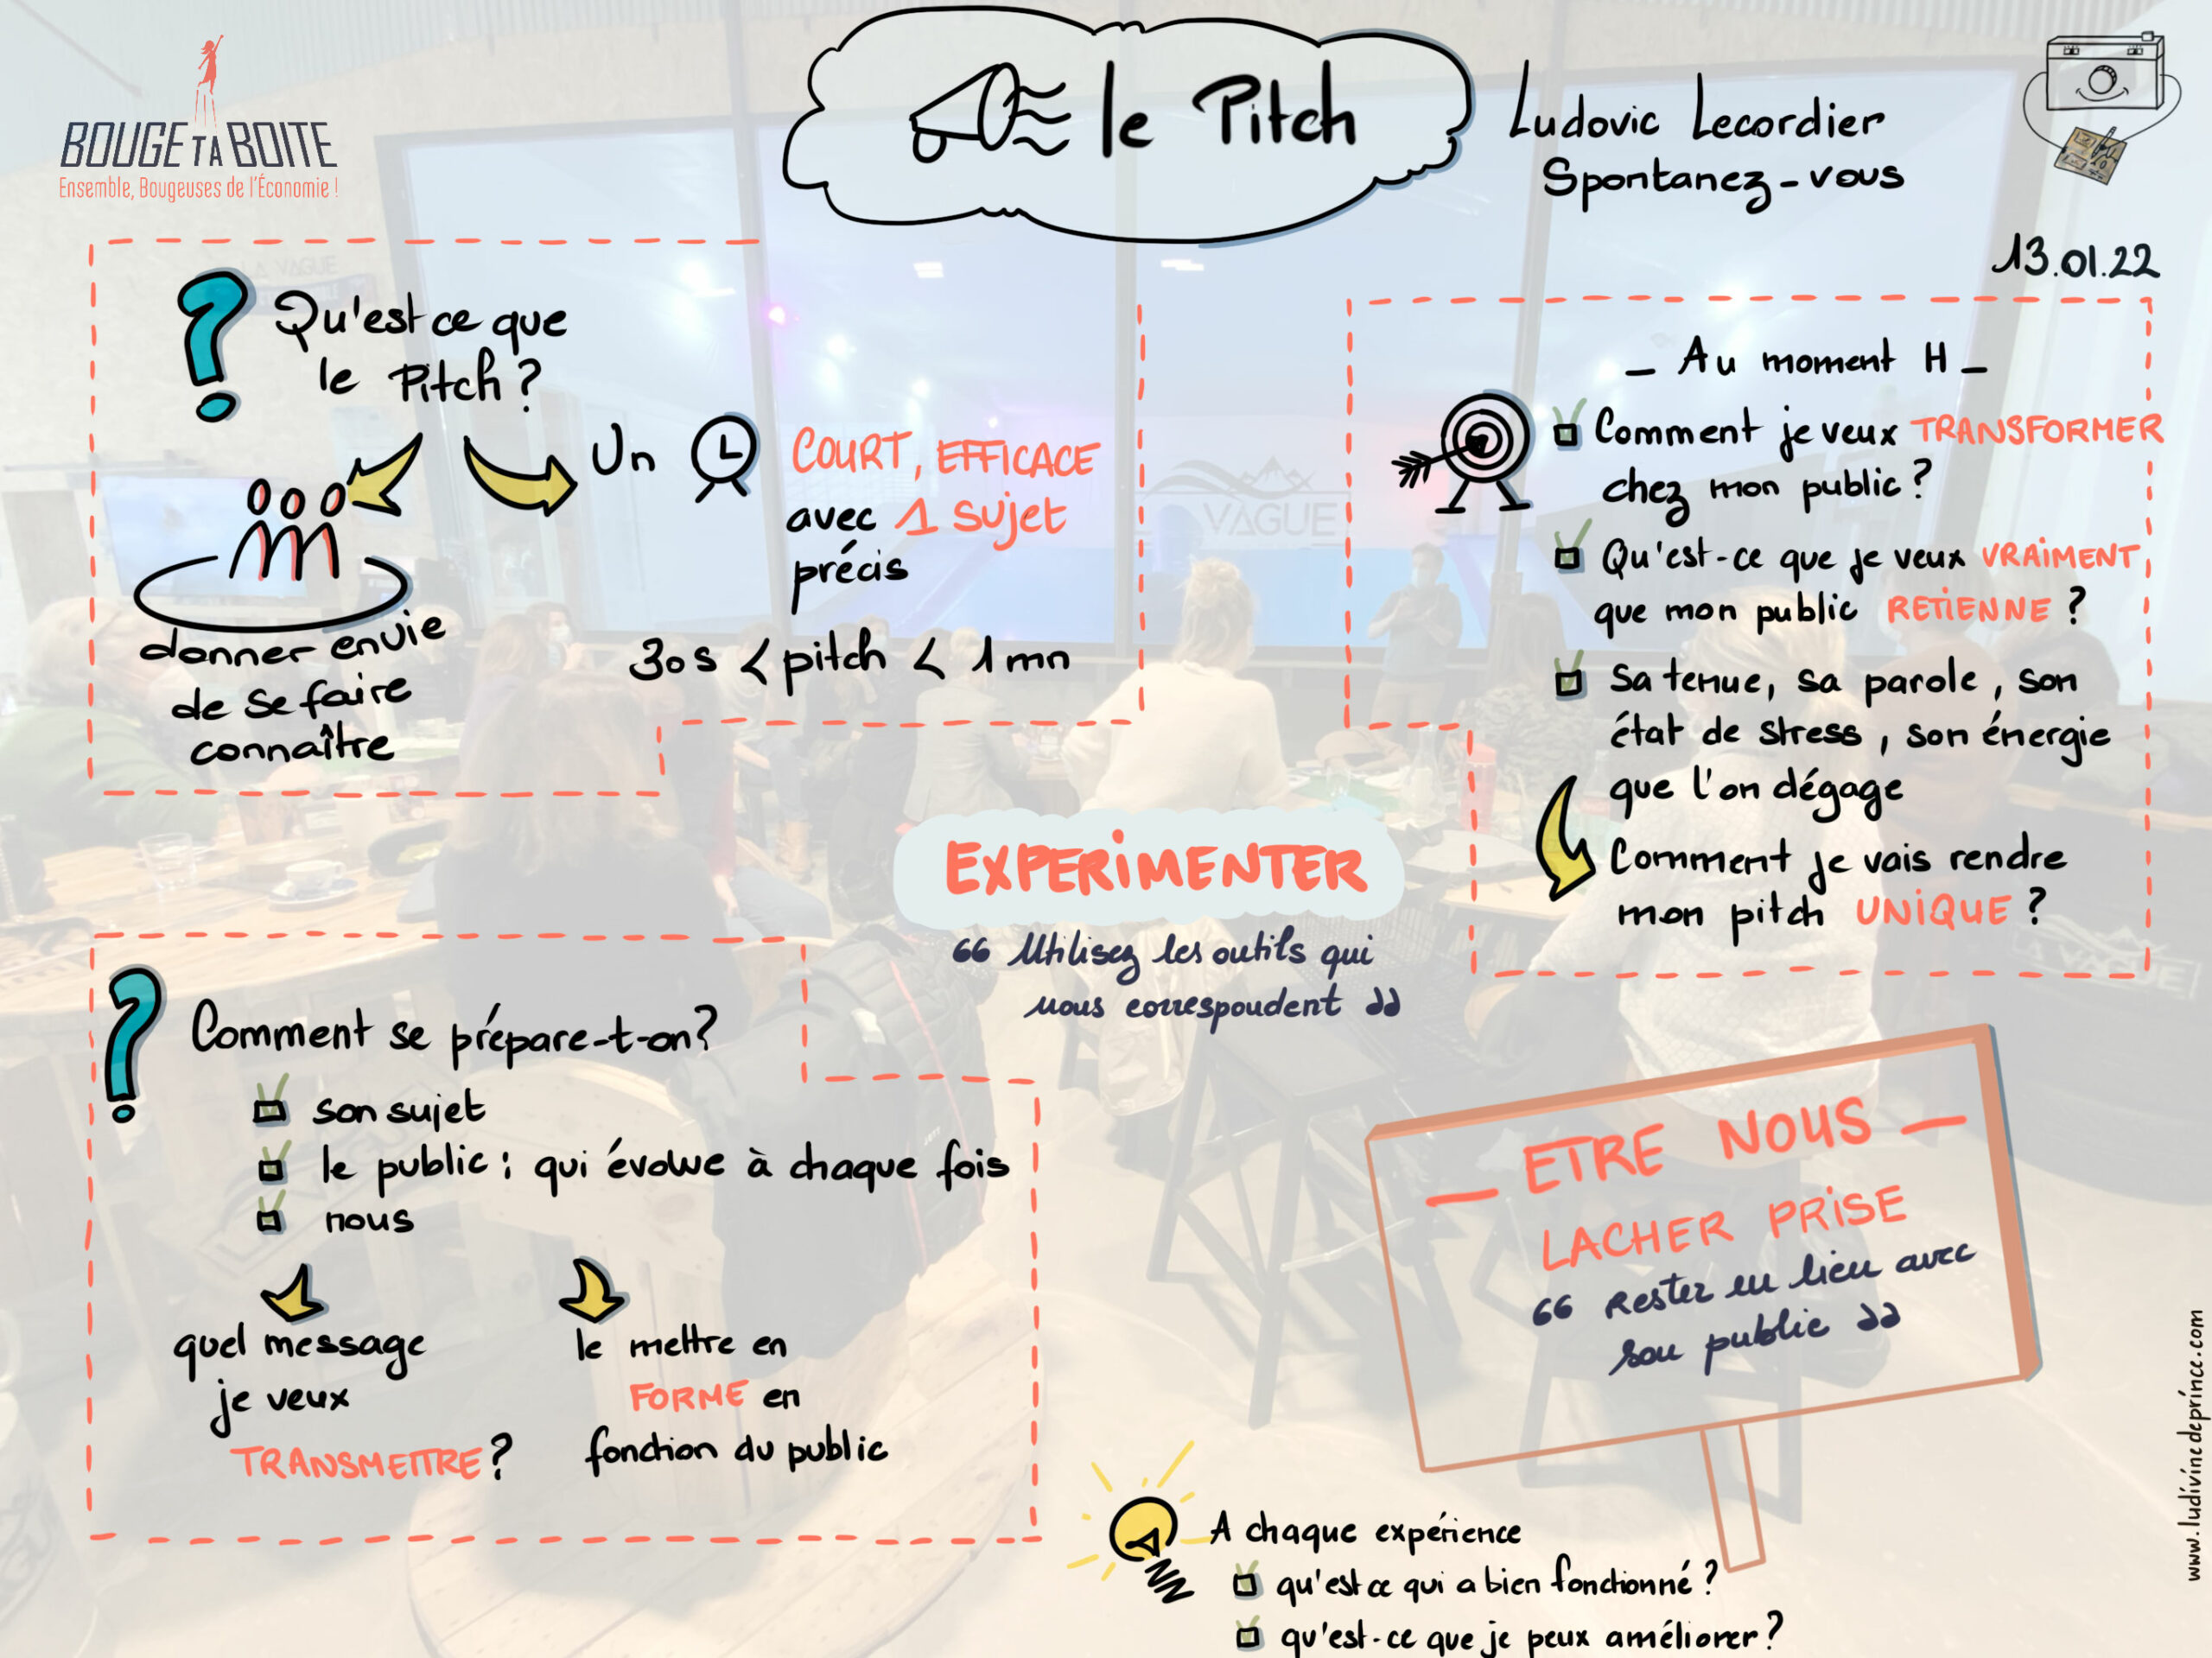 BOUGE TA BOITE
Ensemble, Bougeuses de l'Économie !
le Pitch
Ludovic Lecordier
Spontanez-vous
13.01.22
LA VAGUE
Qu'est ce que
le Pitch ?
donner envie
de se faire
connaître
Un COURT, EFFICACE
avec 1 sujet
précis
30s < pitch < 1 mn
VAGUE
- Au moment H -
Comment je veux TRANSFORMER
chez mon public ?
Qu'est-ce que je veux VRAIMENT
que mon public RETIENNE ?
Sa tenue, sa parole, son
état de stress, son énergie
que l'on dégage
Comment je vais rendre
mon pitch UNIQUE ?
EXPERIMENTER
66 Utilisez les outils qui
nous correspondent 99
LA VAGUE
Comment se prépare-t-on?
son sujet
le public : qui évolue à chaque fois
nous
quel message
je veux
TRANSMETTRE ?
le mettre en
FORME en
fonction du public
- ETRE NOUS -
LACHER PRISE
66 Rester en lien avec
son public 99
A chaque expérience
qu'est ce qui a bien fonctionné ?
qu'est-ce que je peux améliorer ?
www.ludivinedeprince.com